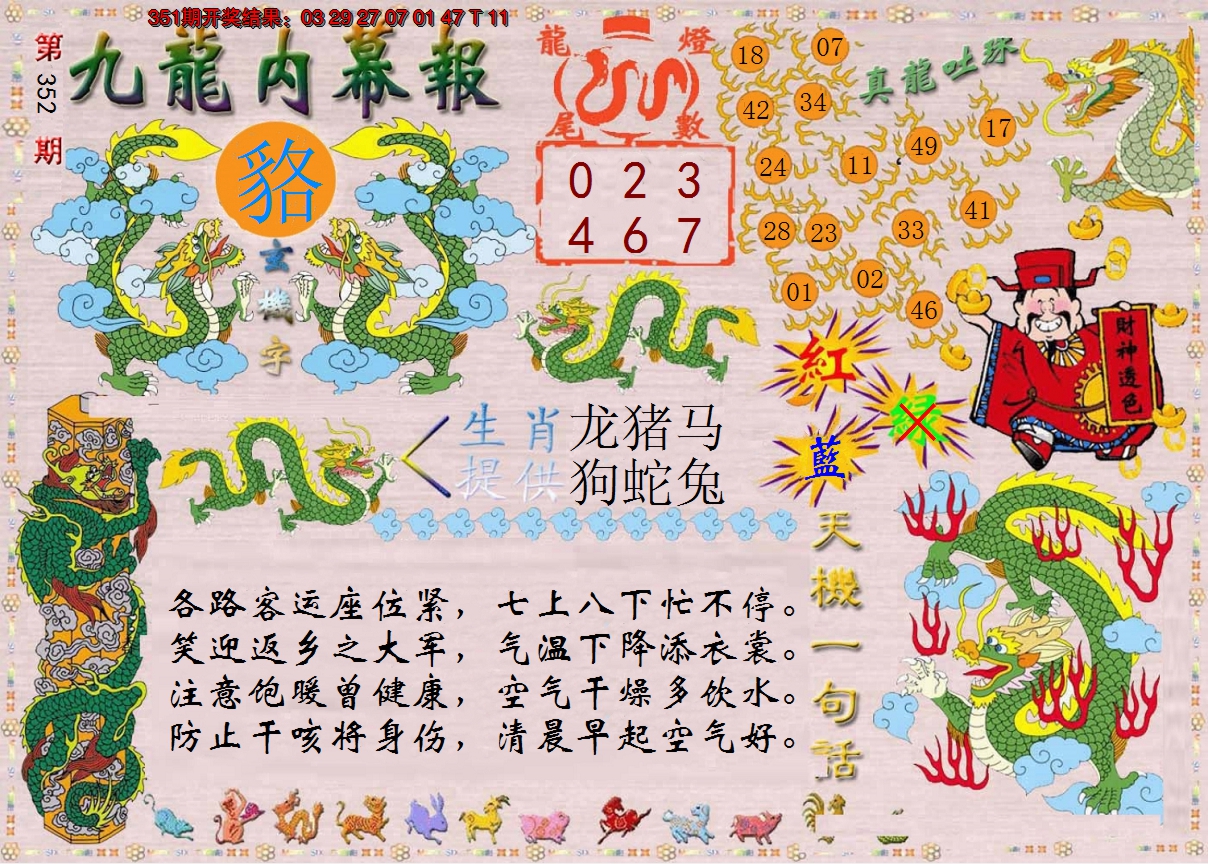 351期开奖结果：03 29 27 07 01 47 T 11
第
352
期
九龍内幕報
貉
玄
機
字
龍 燈
尾 數
0 2 3
4 6 7
真龍吐珠
18
07
42
34
24
11
49
17
28
23
33
41
01
02
46
紅
绿
藍
財神透色
生肖 龙猪马
提供 狗蛇兔
天機一句话
各路客运座位紧，七上八下忙不停。
笑迎返乡之大军，气温下降添衣裳。
注意饱暖曾健康，空气干燥多饮水。
防止干咳将身伤，清晨早起空气好。